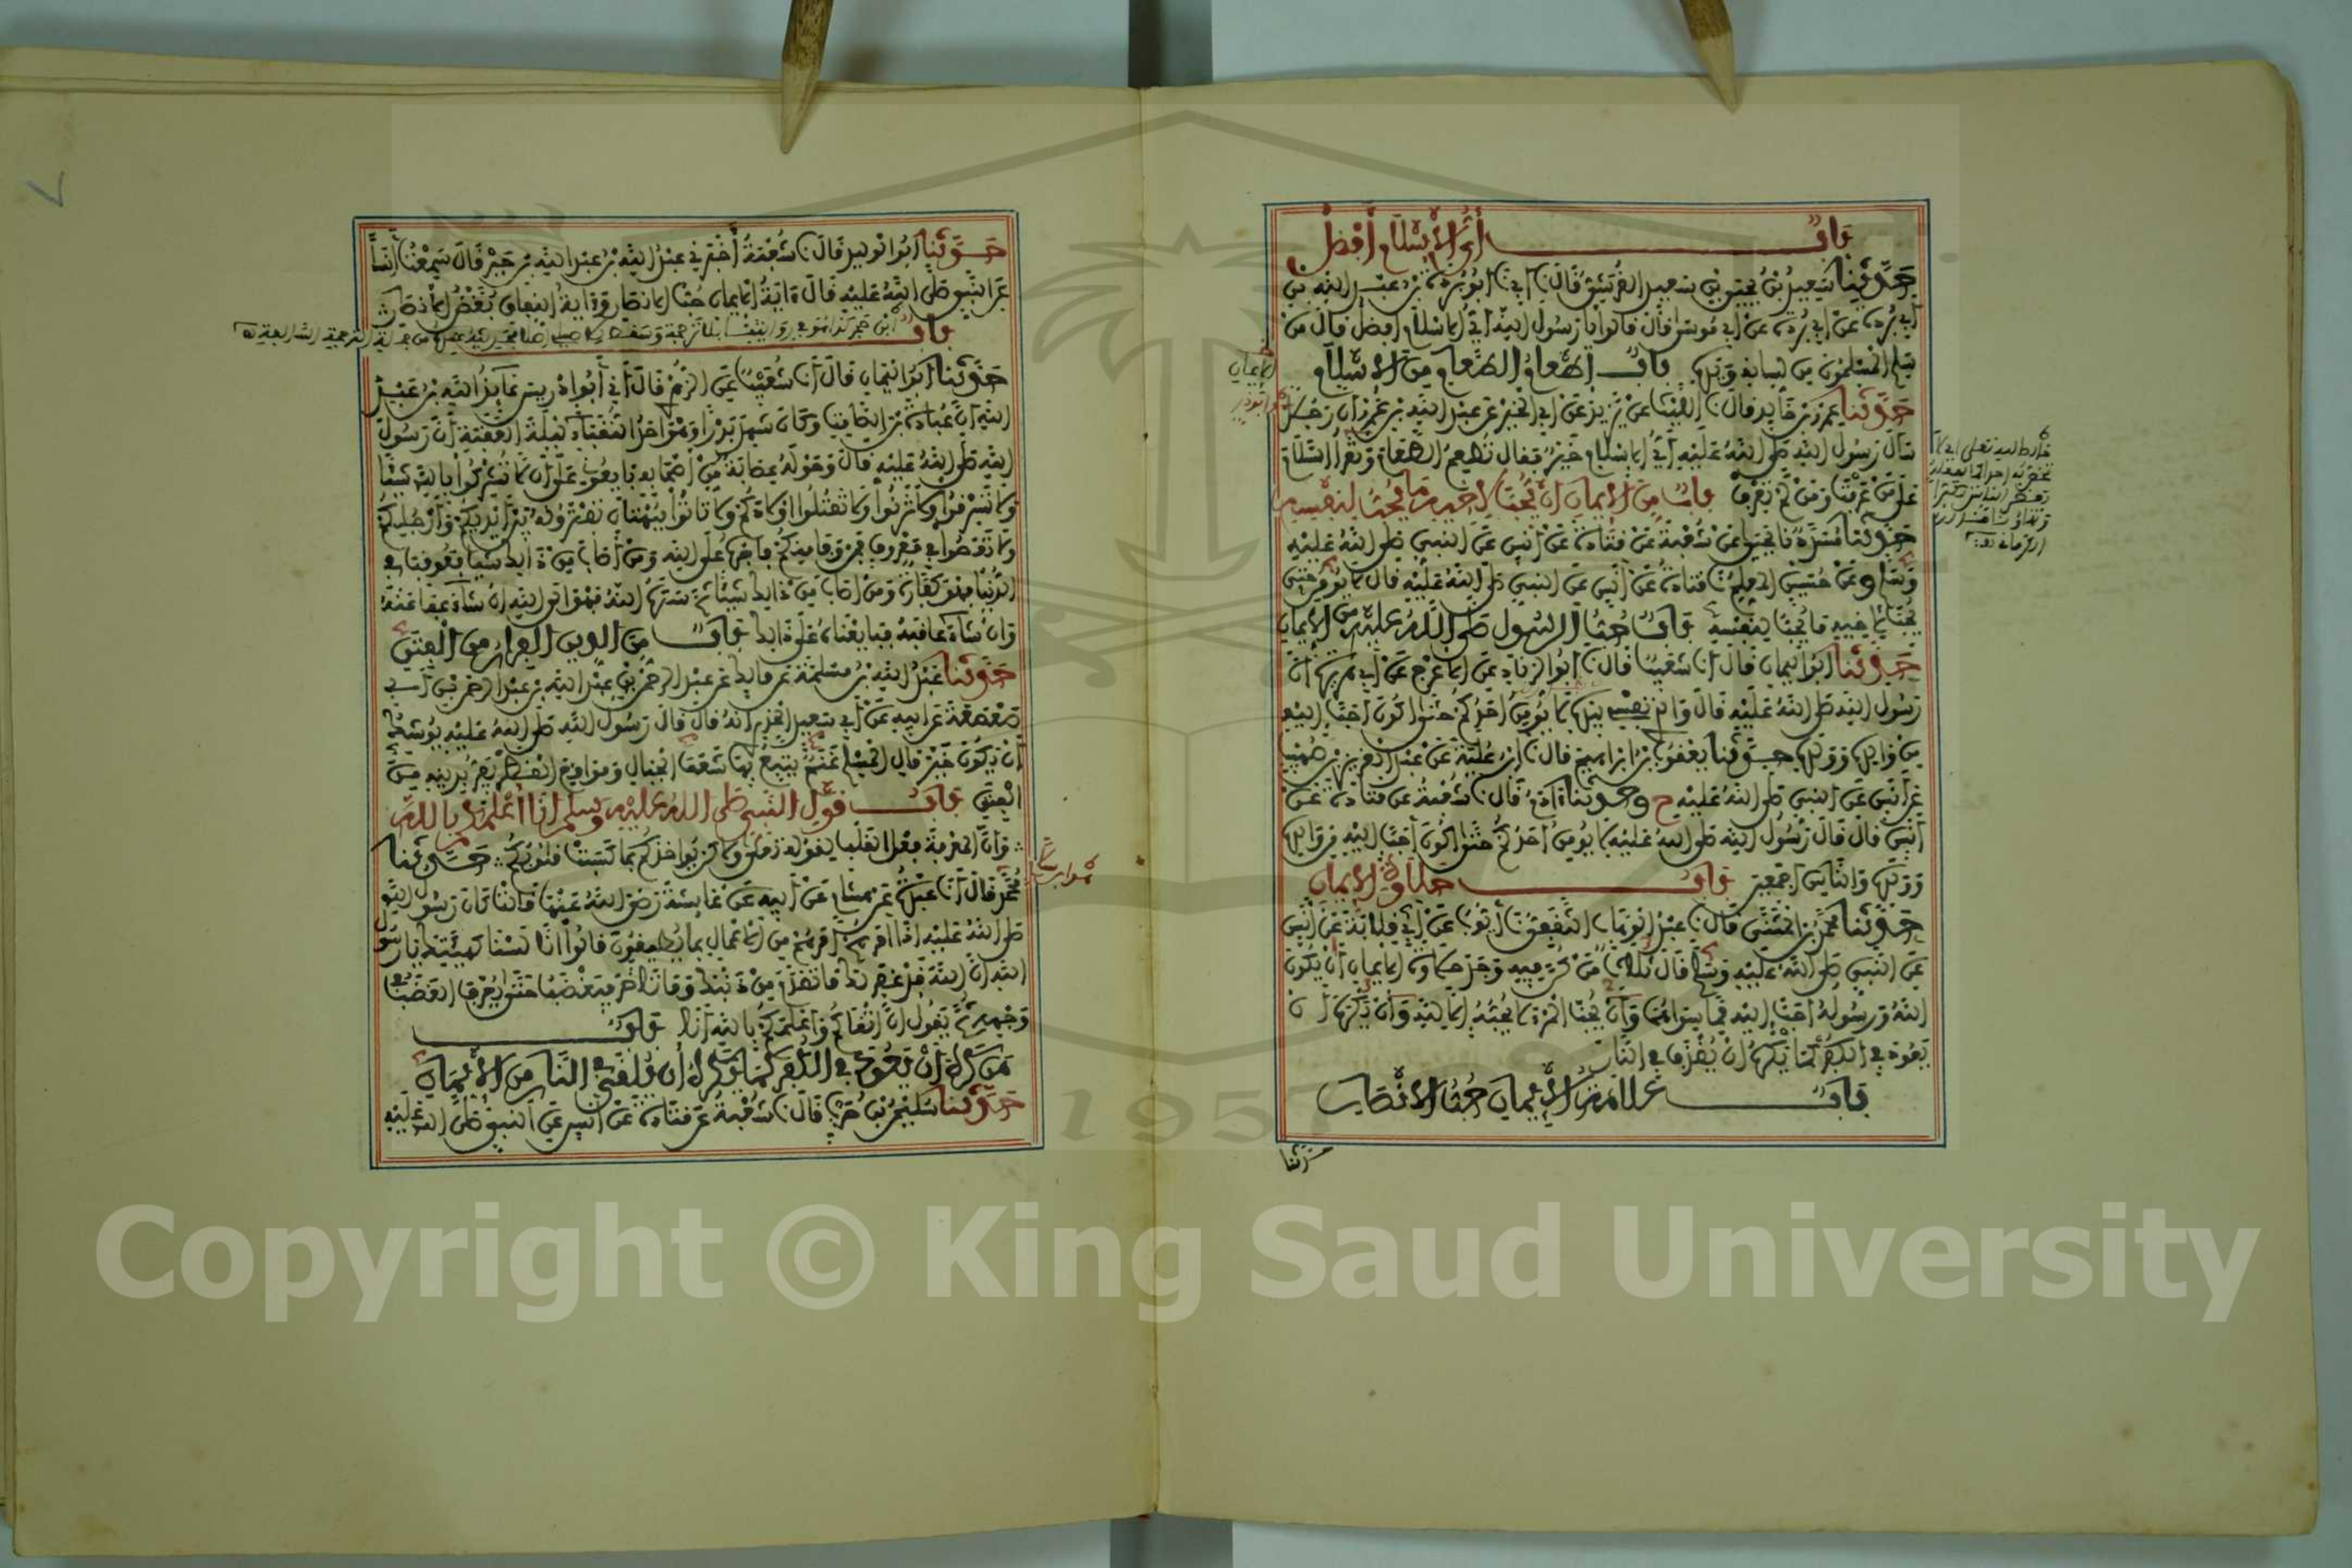 باب أي الإسلام أفضل
حدثنا سعيد بن يحيى بن سعيد القرشي قال نا أبي نا أبو بردة بن عبد الله بن
أبي بردة عن أبي بردة عن أبي موسى قال قالوا يا رسول الله أي الإسلام أفضل قال من
سلم المسلمون من لسانه ويده باب إطعام الطعام من الإسلام
حدثنا عمرو بن خالد قال نا الليث عن يزيد عن أبي الخير عن عبد الله بن عمرو أن رجلا
سأل رسول الله صلى الله عليه أي الإسلام خير فقال تطعم الطعام وتقرأ السلام
على من عرفت ومن لم تعرف باب من الإيمان أن يحب لأخيه ما يحب لنفسه
حدثنا مسدد نا يحيى عن شعبة عن قتادة عن أنس عن النبي صلى الله عليه
وسلم وعن حسين المعلم نا قتادة عن أنس عن النبي صلى الله عليه قال لا يؤمن حتى
يحب لأخيه ما يحب لنفسه باب حب الرسول صلى الله عليه من الإيمان
حدثنا أبو اليمان قال أنا شعيب قال نا أبو الزناد عن الأعرج عن أبي هريرة أن
رسول الله صلى الله عليه قال والذي نفسي بيده لا يؤمن أحدكم حتى أكون أحب إليه
من والده وولده حدثنا يعقوب بن إبراهيم قال نا ابن علية عن عبد العزيز بن صهيب
عن أنس عن النبي صلى الله عليه ح وحدثنا آدم قال نا شعبة عن قتادة عن
أنس قال قال رسول الله صلى الله عليه لا يؤمن أحدكم حتى أكون أحب إليه من والده
وولده والناس أجمعين باب حلاوة الإيمان
حدثنا محمد بن المثنى قال نا عبد الوهاب الثقفي نا أيوب عن أبي قلابة عن أنس
عن النبي صلى الله عليه وسلم قال ثلاث من كن فيه وجد حلاوة الإيمان أن يكون
الله ورسوله أحب إليه مما سواهما وأن يحب المرء لا يحبه إلا لله وأن يكره أن
يعود في الكفر كما يكره أن يقذف في النار
باب علامة الإيمان حب الأنصار
حدثنا
حدثنا أبو الوليد قال نا شعبة أخبرني عبد الله بن عبد الله بن جبر قال سمعت أنسا
عن النبي صلى الله عليه قال آية الإيمان حب الأنصار وآية النفاق بغض الأنصار
باب
حدثنا أبو اليمان قال أنا شعيب عن الزهري قال أني أبو إدريس عايذ الله بن عبد
الله أن عبادة بن الصامت وكان شهد بدرا وهو أحد النقباء ليلة العقبة أن رسول
الله صلى الله عليه قال وحوله عصابة من أصحابه بايعوني على أن لا تشركوا بالله شيئا
ولا تسرقوا ولا تزنوا ولا تقتلوا أولادكم ولا تأتوا ببهتان تفترونه بين أيديكم وأرجلكم
ولا تعصوا في معروف فمن وفى منكم فأجره على الله ومن أصاب من ذلك شيئا فعوقب في
الدنيا فهو كفارة ومن أصاب من ذلك شيئا ثم ستره الله فهو إلى الله إن شاء عفا عنه
وإن شاء عاقبه فبايعناه على ذلك باب من الدين الفرار من الفتن
حدثنا عبد الله بن مسلمة عن مالك عن عبد الرحمن بن عبد الله بن عبد الرحمن بن أبي
صعصعة عن أبيه عن أبي سعيد الخدري أنه قال قال رسول الله صلى الله عليه يوشك
أن يكون خير مال المسلم غنم يتبع بها شعف الجبال ومواقع القطر يفر بدينه من
الفتن باب قول النبي صلى الله عليه وسلم أنا أعلمكم بالله
وأن المعرفة فعل القلب لقوله ولكن يؤاخذكم بما كسبت قلوبكم حدثنا
محمد قال أنا عبدة عن هشام عن أبيه عن عائشة رضي الله عنها قالت كان رسول الله
صلى الله عليه إذا أمرهم أمرهم من الأعمال بما يطيقون قالوا إنا لسنا كهيئتك يا رسول
الله إن الله قد غفر لك ما تقدم من ذنبك وما تأخر فيغضب حتى يعرف الغضب في
وجهه ثم يقول إن أتقاكم وأعلمكم بالله أنا باب
من كره أن يعود في الكفر كما يكره أن يلقى في النار من الإيمان
حدثنا سليمن بن حرب قال نا شعبة عن قتادة عن أنس عن النبي صلى الله عليه
1957
Copyright © King Saud University